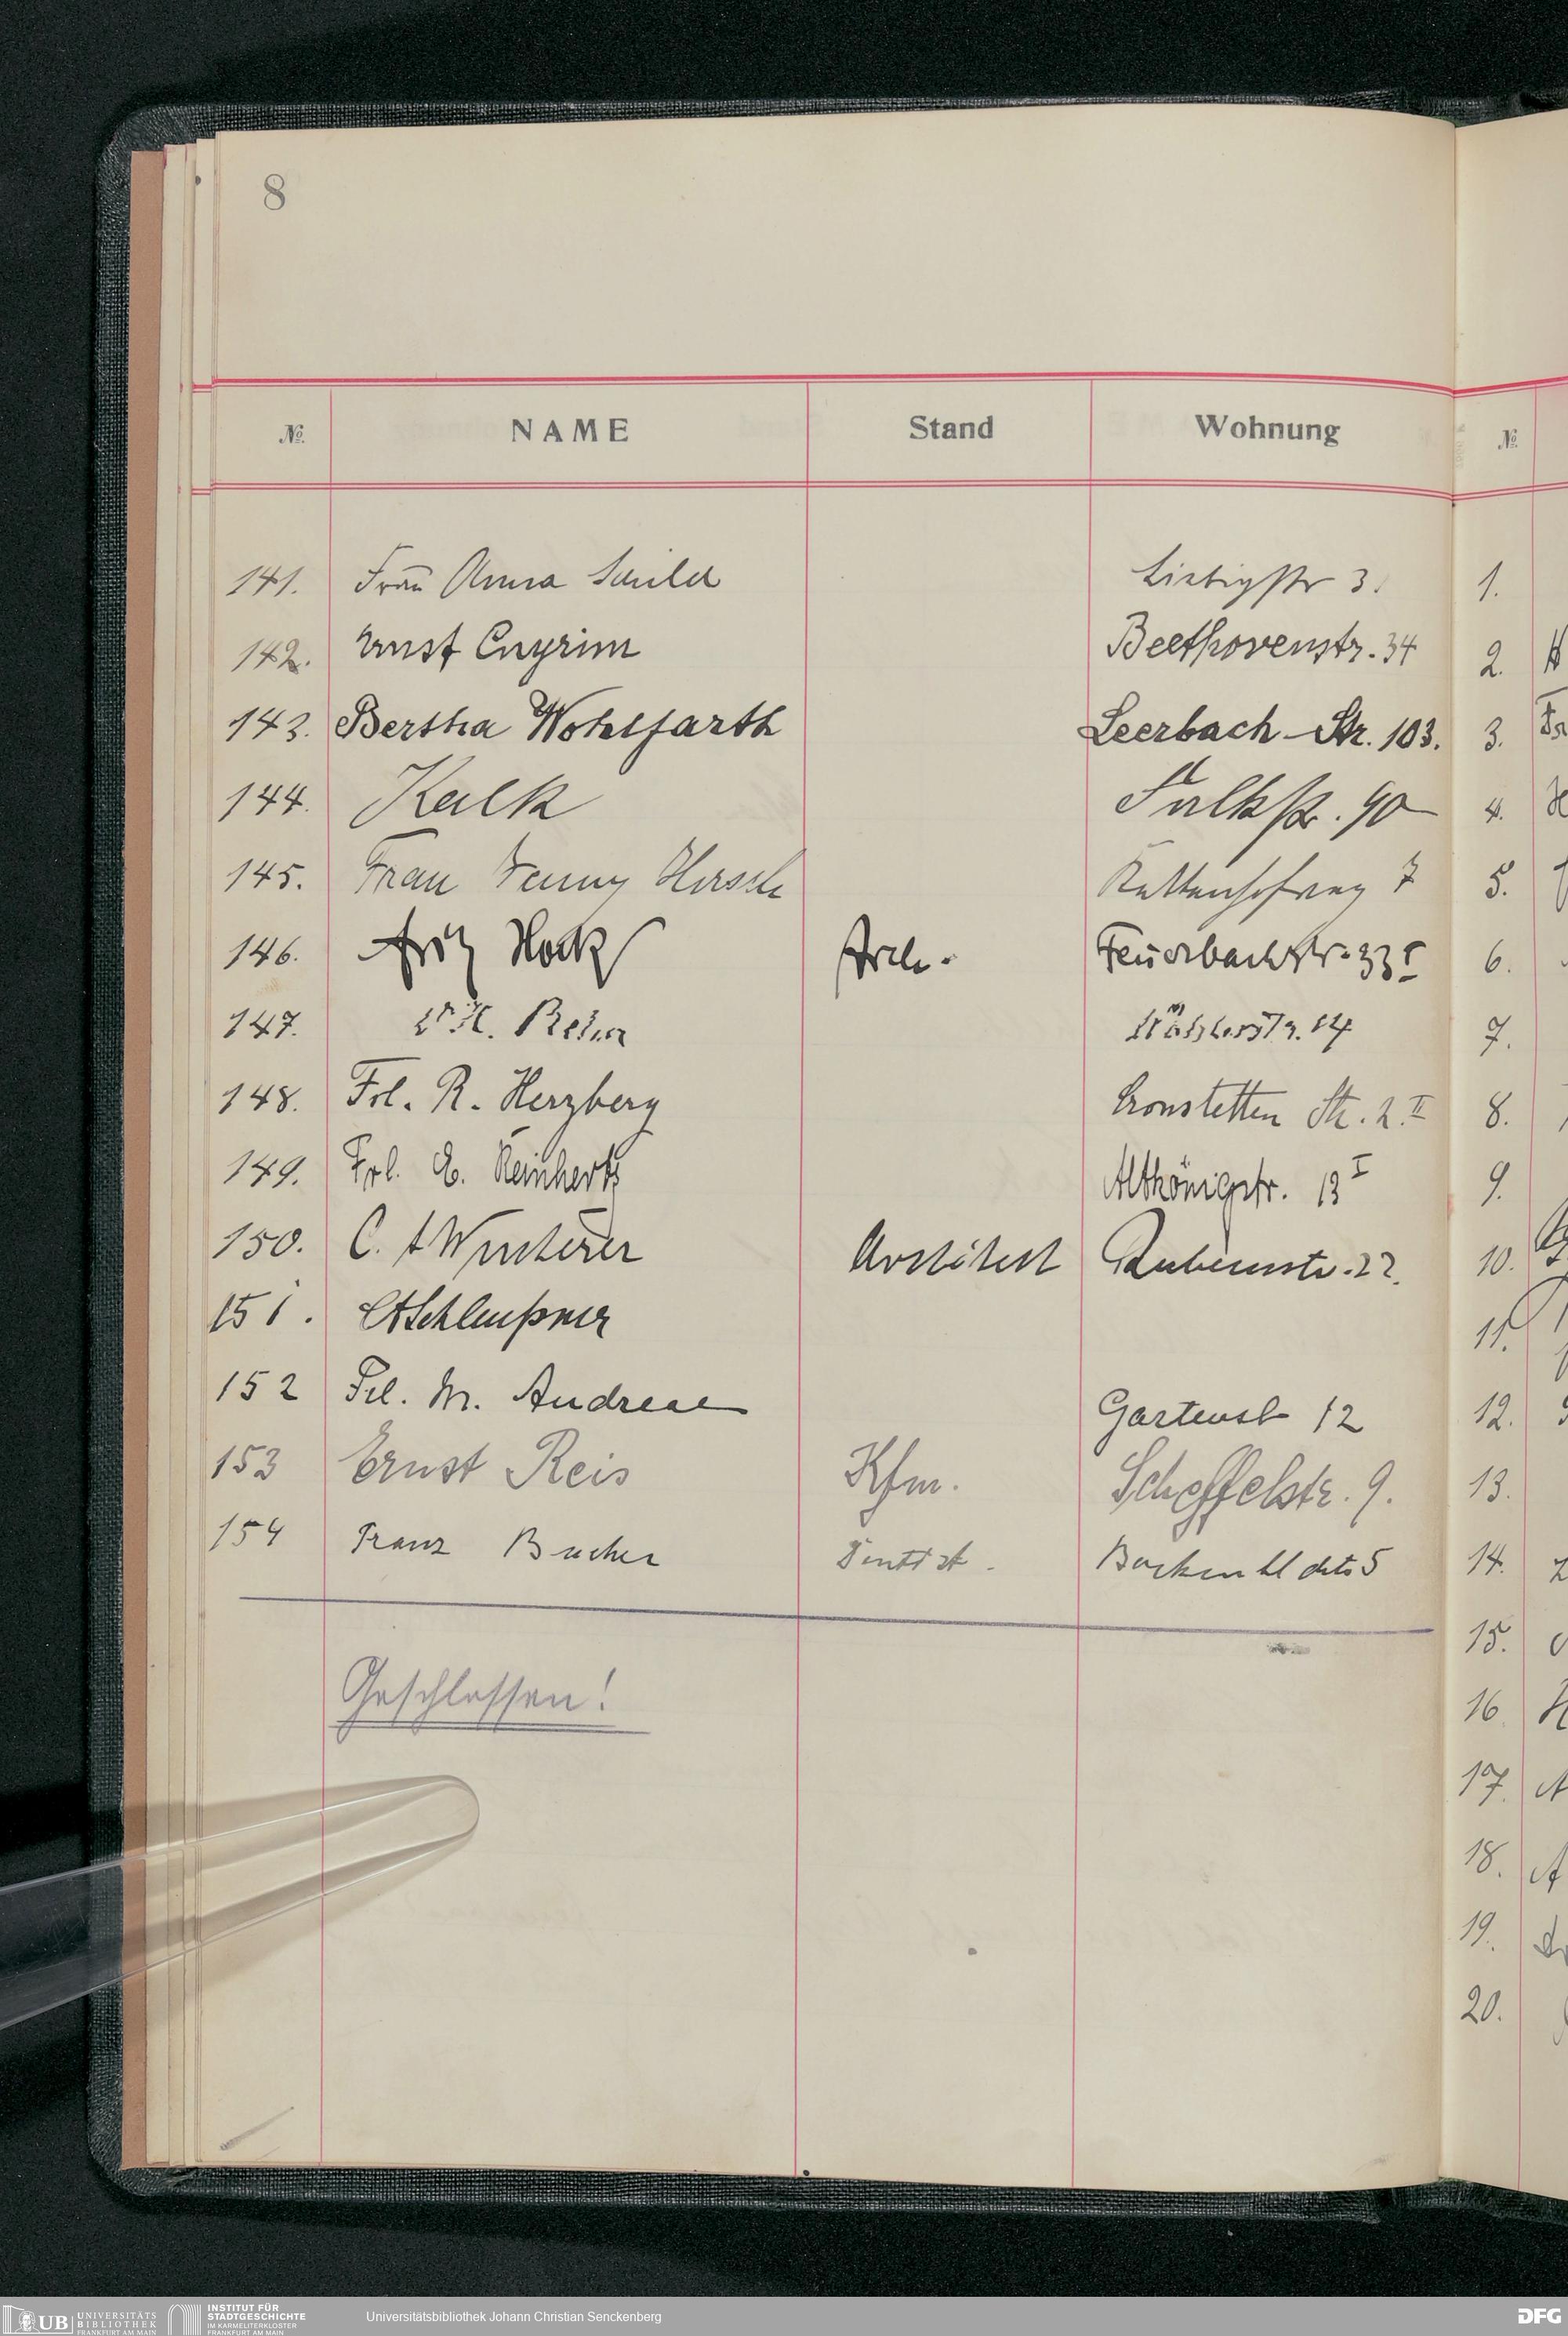 8
№ NAME Stand Wohnung №
141. Frau Anna Schild Liebigstr 3. 1.
142. Ernst Enyrim Beethovenstr. 34 2.
143. Bertha Wohlfarth Leerbach-Str. 103. 3.
144. Kalk Falkstr. 90 4.
145. Frau Jenny Hirsch Kettenhofweg 7 5.
146. Fritz Hock Arch. Feuerbachstr. 33 I 6.
147. Dr. H. 14 7.
148. Frl. R. Herzberg Cronstetten Str. 2. II 8.
149. Frl. E. Reinhertz Altkönigstr. 13 I 9.
150. C. A Winterer Architekt Rubensstr. 22. 10.
151. Schleußner 11.
152 Frl. M. Andreae Gartenstr 12 12.
153 Ernst Reis Kfm. Scheffelstr. 9. 13.
154 Franz Bucher Dentist. 5 14.
15.
Geschlossen!
16
17.
18.
19.
20.
UB UNIVERSITÄTS BIBLIOTHEK FRANKFURT AM MAIN
INSTITUT FÜR STADTGESCHICHTE IM KARMELITERKLOSTER FRANKFURT AM MAIN
Universitätsbibliothek Johann Christian Senckenberg
DFG